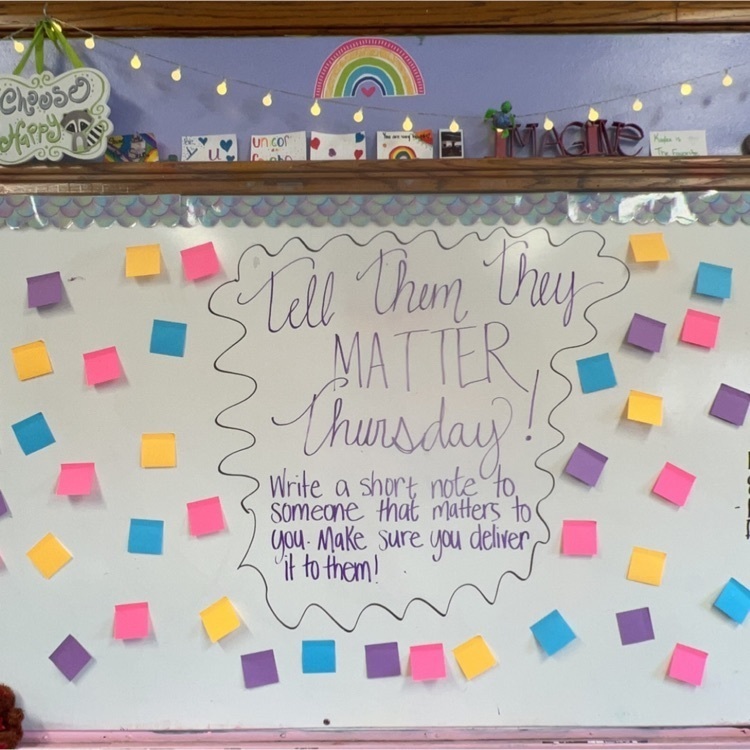 Choose
Happy
Be
YOU
IMAGINE
Tell Them They
MATTER
Thursday!
Write a short note to
someone that matters to
you. Make sure you deliver
it to them!